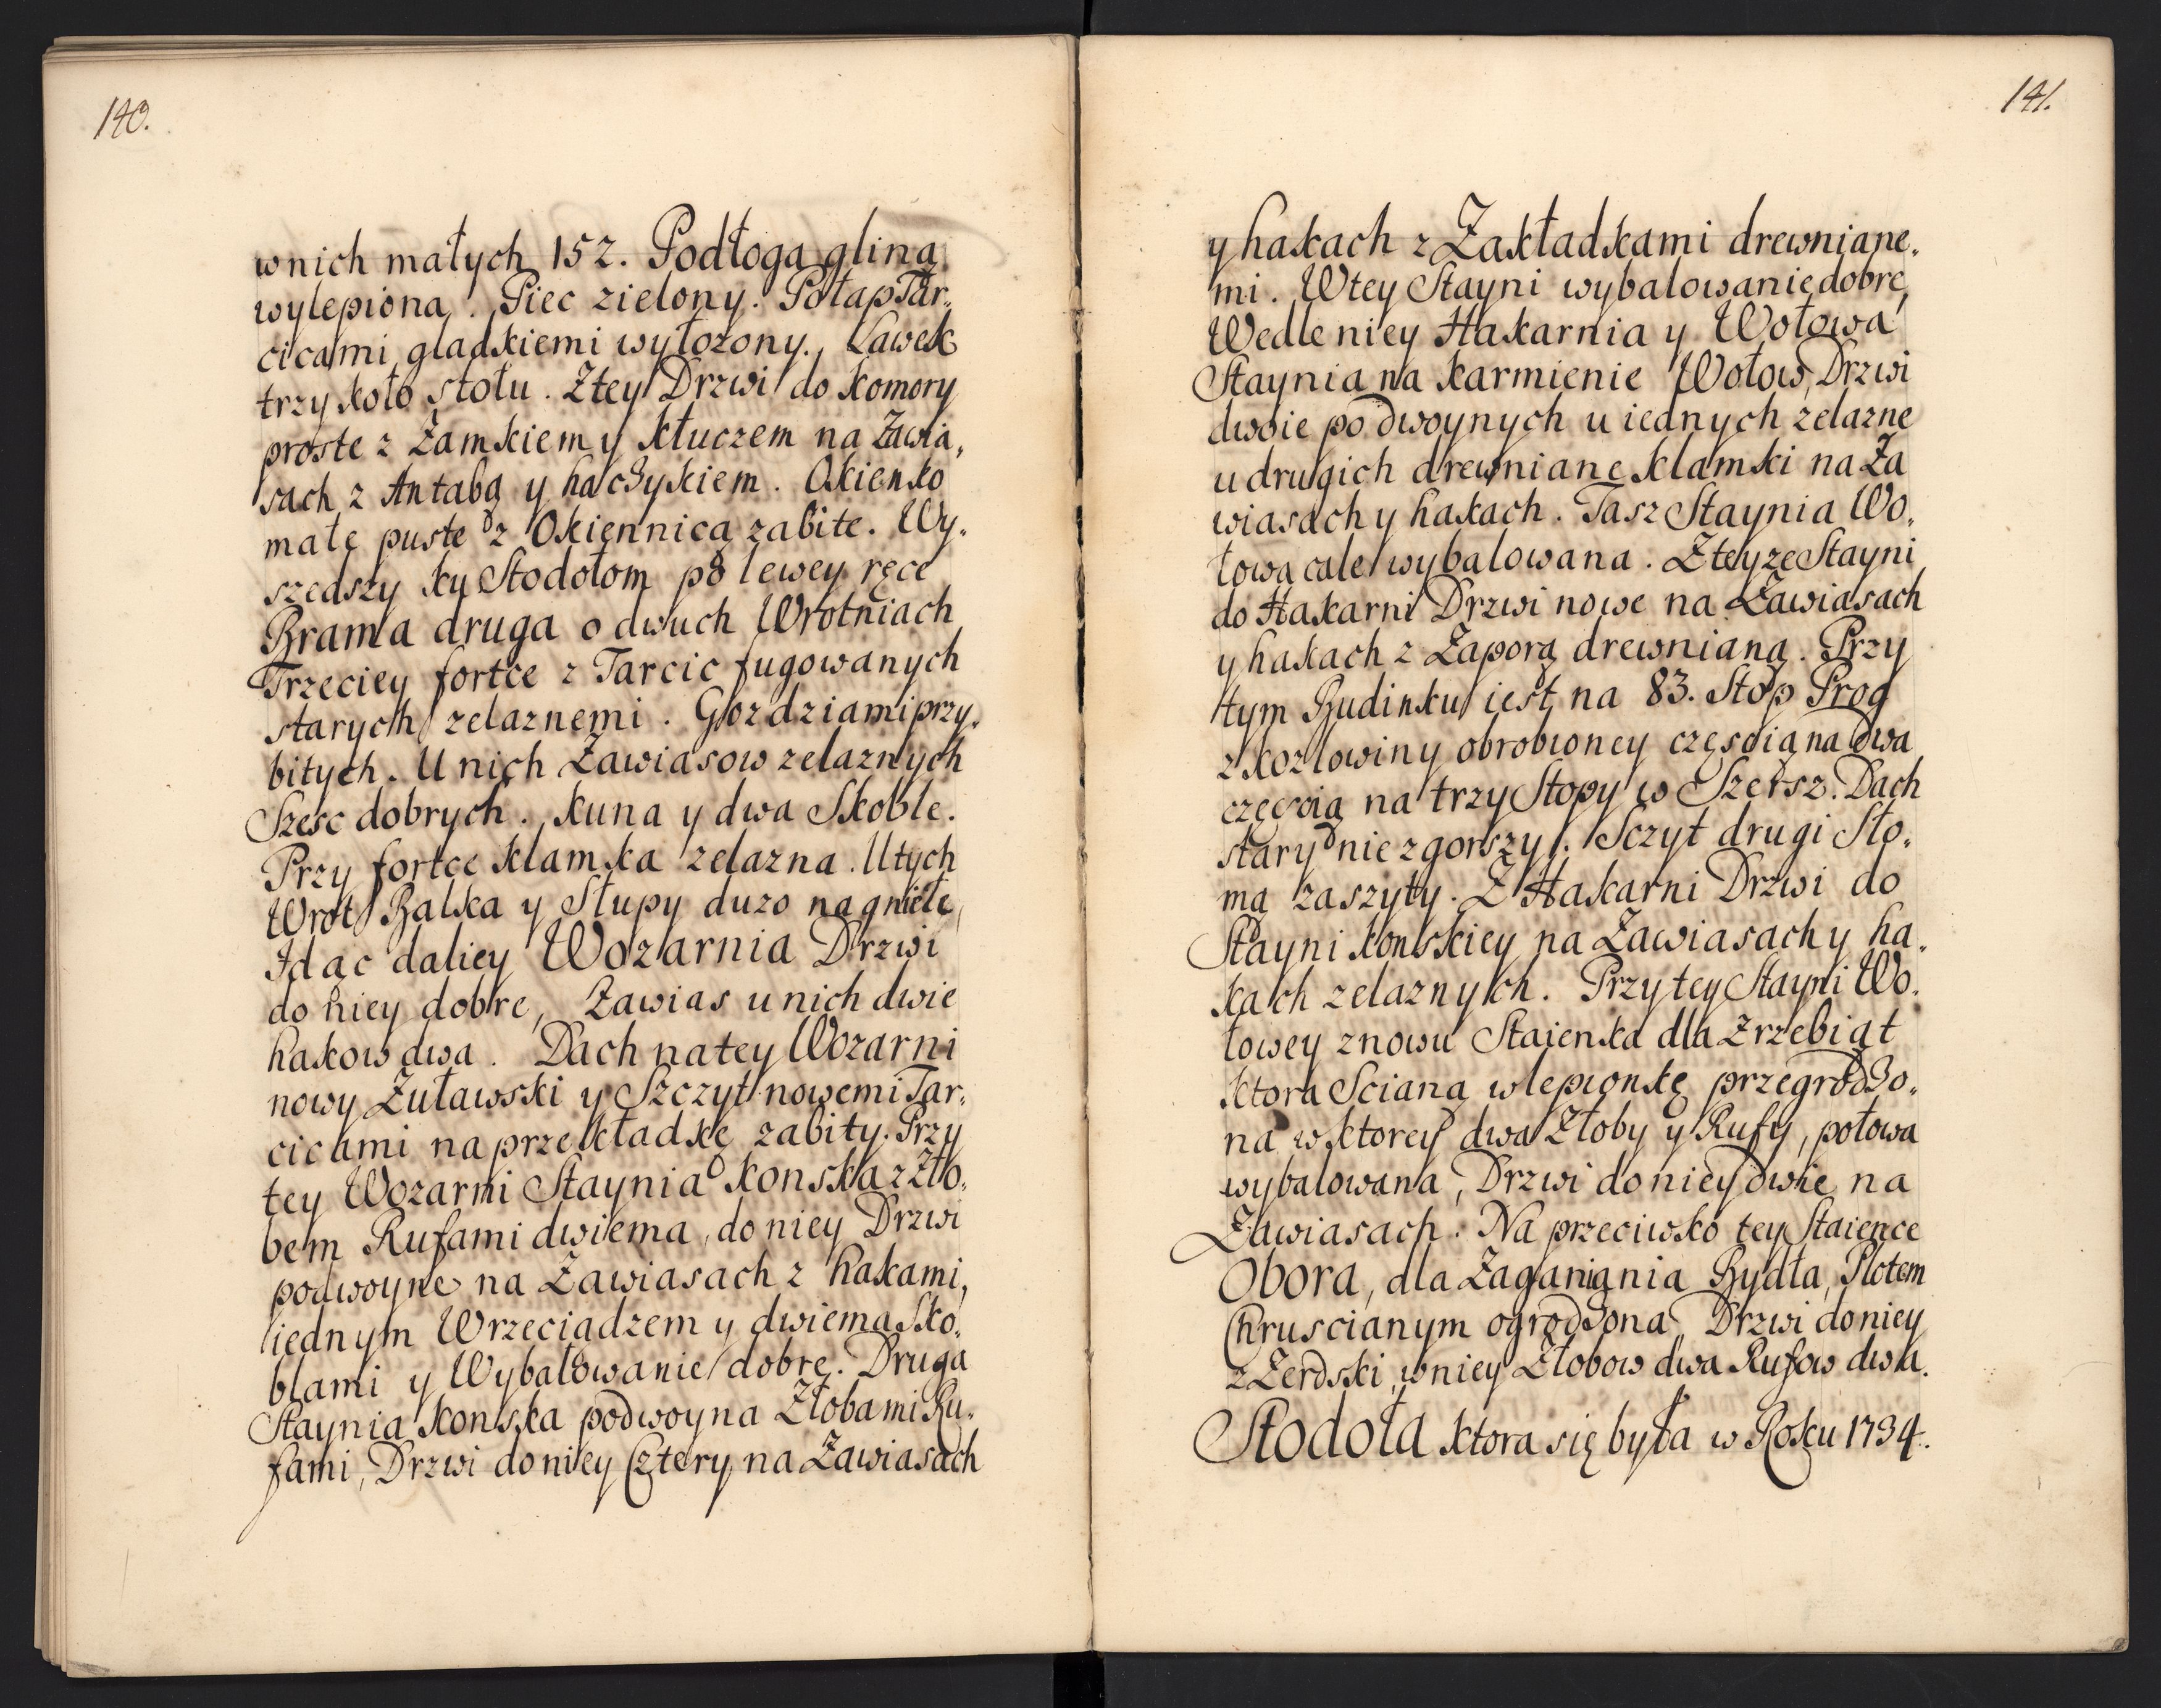 140.
w nich małych 152. Podłoga gliną
wylepiona. Piec zielony. Połap Tar„
cicami gladkiemi wyłozony. Lawek
trzy koło stołu. Z tey Drzwi do Komory
proste z Zamkiem y kluczem na Zawia„
sach z Antabą y haczykiem. Okienko
małe puste z Okiennicą zabite. Wy„
szedszy ku Stodołom po lewey ręce
Brama druga o dwuch Wrotniach
Trzeciey fortce z Tarcic fugowanych
starych zelaznemi. Gozdziami przy„
bitych. U nich Zawiasow zelaznych
Szesc dobrych. Kuna y dwa Skoble.
Przy fortce klamka zelazna. U tych
Wrot Balka y Słupy duzo nagniełe,
Idąc daliey Wozarnia Drzwi
do niey dobre, Zawias u nich dwie
hakow dwa. Dach na tey Wozarni
nowy Żuławski y Szczyt nowemi Tar„
cicami na przekładkę zabity. Przy
tey Wozarni Staynia Konska z Zło„
bem Rufami dwiema, do niey Drzwi
podwoyne na Zawiasach z hakami,
iednym Wrzeciądzem y dwiema Sko„
blami y Wybalowanie dobre. Druga
Staynia Konska podwoyna Złobami Ru„
fami, Drzwi do niey Cztery na Zawiasach
141.
y hakach z Zakładkami drewniane„
mi. W tey Stayni wybalowanie dobre,
Wedle niey Hakarnia y Wołowa
Staynia na karmienie Wołow, Drzwi
dwoie podwoynych u iednych zelazne
u drugich drewniane klamki na Za
wiasach y hakach. Tasz Staynia Wo„
łowa cale wybalowana. Z teyze Stayni
do Hakarni Drzwi nowe na Zawiasach
y hakach z Zaporą drewnianą. Przy
tym Budinku iest na 83. Stop Prog
z kozlowiny obrobioney częscią na dwa
częscią na trzy Stopy w Szersz. Dach
stary niezgorszy. Sczyt drugi Sło„
mą zaszyty. Z Hakarni Drzwi do
Stayni Konskiey na Zawiasach y ha„
kach zelaznych. Przy tey Stayni Wo„
łowey znowu Staienka dla Zrzebiąt
ktora Scianą w lepionkę przegrodzo„
na w ktorey dwa Złoby y Rufy, połowa
wybalowana, Drzwi do niey dwie na
Zawiasach. Na przeciwko tey Staience
Obora, dla Zaganiania Bydła, Plotem
Chruscianym ogrodzona Drzwi do niey
z Zerdski, w niey Złobow dwa Rufow dwa.
Stodoła ktora się była w Roku 1734.